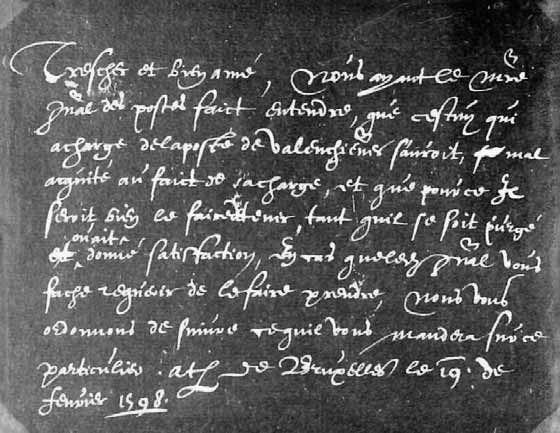 Trescher et bien amé, Nous ayant le mre
gnal des postes faict entendre, que cestuy qui
a charge de la poste de Valenchiennes s'auroit, mal
acquité au faict de sa charge, et que pour ce Il
seroit bien le faire tenir, tant quil se soit purgé
et ou ait donné satisfaction, En cas que led gnal vous
fache requerir de le faire prendre, Nous vous
ordonnons de suivre ce quil vous mandera sur ce
particulier. de Bruxelles le 19. de
fevrier 1598.